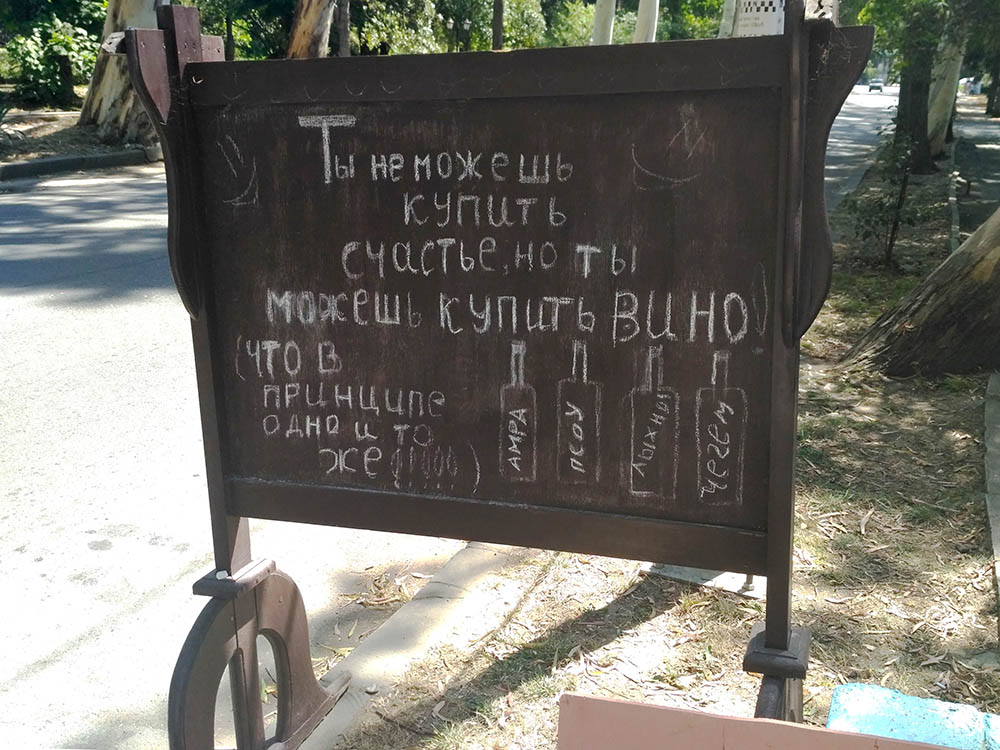 Ты не можешь
купить
счастье, но ты
можешь купить ВИНО!
(что в
принципе
одно и то
же )
АМРА
ПСОУ
ЛЫХНЫ
ЧЕГЕМ